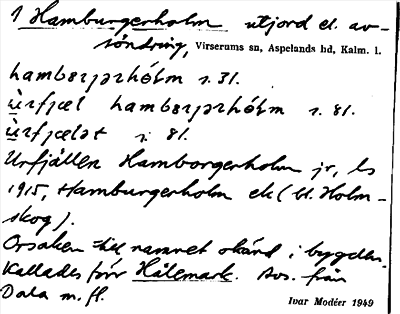 1 Hamburgerholm utjord el. av-
söndring, Virserums sn, Aspelands hd, Kalm. l.
hambərjərhólm s. 31.
ùrfjæl hambərjərhólm s. 81.
ùrfjælət s. 81.
Urfjällen Hamborgerholm jr, ls
1915, Hamburgerholm ek (bl. Holm-
skog).
Orsaken till namnet okänd i bygden.
Kallades förr Hälemark. Avs. från
Dala m. fl.
Ivar Modéer 1949